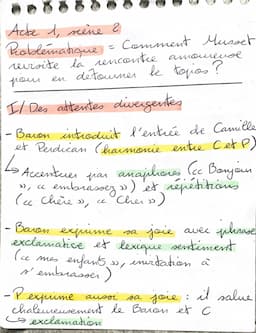 Acte 1, scène 2
Problématique = Comment Musset
revisite la rencontre amoureuse
pour en détourner le topos ?
I/ Des attentes divergentes
- Baron introduit l'entrée de Camille
et Perdican (harmonie entre C et P)
↳ Accentuée par anaphores (cc Bonjour
», « embrassez ») et répétitions
(« Chère », « Cher »)
- Baron exprime sa joie avec phrase
exclamative et lexique sentiment
(« mes enfants », invitation à
s'embrasser)
- P exprime aussi sa joie : il salue
chaleureusement le Baron et C
↳ exclamation